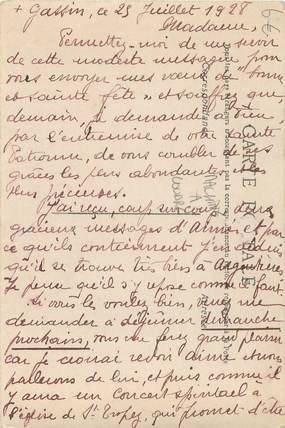 + Gassin, ce 25 Juillet 1928
Madame,
Permettez-moi de me servir
de cette modeste messagère pour
vous envoyer mes vœux de "bonne
et sainte fête" et souffrez que,
demain, je demande à Dieu
par l'entremise de votre sainte
Patronne, de vous combler de ses
grâces les plus abondantes, les
plus précieuses.
J'ai reçu, coup sur coup, deux
gracieux messages d'Aimé, et par
ce qu'ils contiennent j'en déduis
qu'il se trouve très bien à
Je pense qu'il s'y repose comme il faut.
Si vous le voulez bien, vous me
demander à déjeuner dimanche
prochain, vous me ferez grand plaisir
car je croirai revoir Aimé et nous
parlerons de lui, et puis comme il
y aura un concert spirituel à
l'église de St Tropez, qui promet d'être
CARTE POSTALE
Correspondance